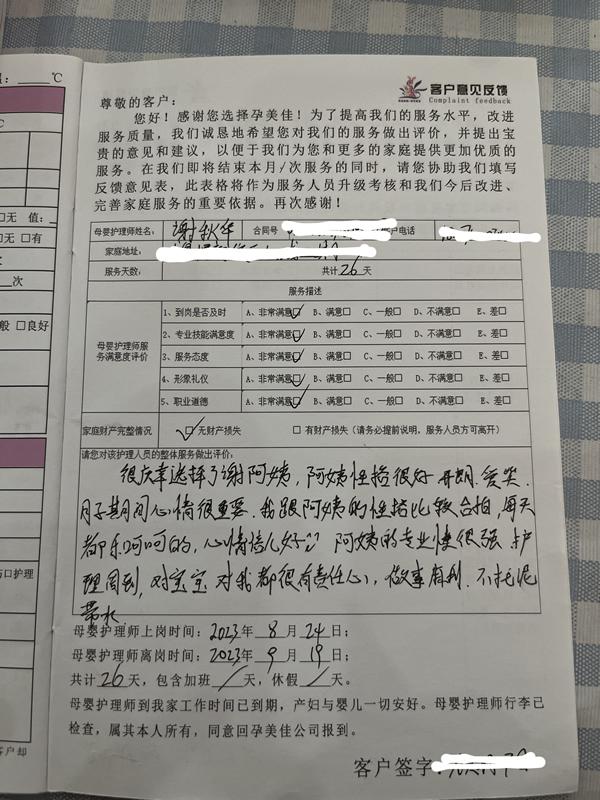 照：____℃
客户意见反馈
Complaint feedback
尊敬的客户：
您好！感谢您选择孕美佳！为了提高我们的服务水平，改进
服务质量，我们诚恳地希望您对我们的服务做出评价，并提出宝
贵的意见和建议，以便于我们为您和更多的家庭提供更加优质的
服务。在我们即将结束本月/次服务的同时，请您协助我们填写
反馈意见表，此表格将作为服务人员升级考核和我们今后改进、
完善家庭服务的重要依据。再次感谢！
母婴护理师姓名： 谢秋华 合同号 客户电话
家庭地址：
服务天数： 共计26天
服务描述
母婴护理师服
务满意度评价
1、到岗是否及时 A、非常满意☑ B、满意□ C、一般□ D、不满意□ E、差□
2、专业技能满意度 A、非常满意☑ B、满意□ C、一般□ D、不满意□ E、差□
3、服务态度 A、非常满意☑ B、满意□ C、一般□ D、不满意□ E、差□
4、形象礼仪 A、非常满意☑ B、满意□ C、一般□ D、不满意□ E、差□
5、职业道德 A、非常满意☑ B、满意□ C、一般□ D、不满意□ E、差□
家庭财产完整情况 ☑无财产损失 □有财产损失（请务必提前说明，服务人员方可离开）
请您对该护理人员的整体服务做出评价：
很庆幸选择了谢阿姨，阿姨性格很好 开朗.爱笑.
月子期间心情很重要.我跟阿姨的性格比较合拍，每天
都乐呵呵的，心情倍儿好 阿姨的专业性很强 护
理周到，对宝宝对我都很有责任心，做事有利.不拖泥
带水.
母婴护理师上岗时间：2023年 8 月 24 日；
母婴护理师离岗时间：2023年 9 月 19 日；
共计 26 天，包含加班 / 天，休假 / 天。
母婴护理师到我家工作时间已到期，产妇与婴儿一切安好。母婴护理师行李已
检查，属其本人所有，同意回孕美佳公司报到。
客户签字：
□无 值：
□无 □有
次
般 □良好
伤口护理
客户却